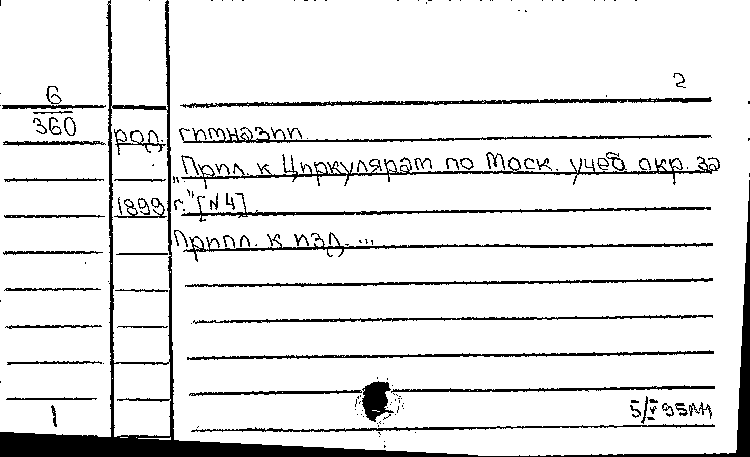 2
6
360
род. гимназии
"Прил. к Циркулярам по Моск. учеб окр. за
1899 г." [N 4]
Прилл. к изд. ...
1
5/V 95